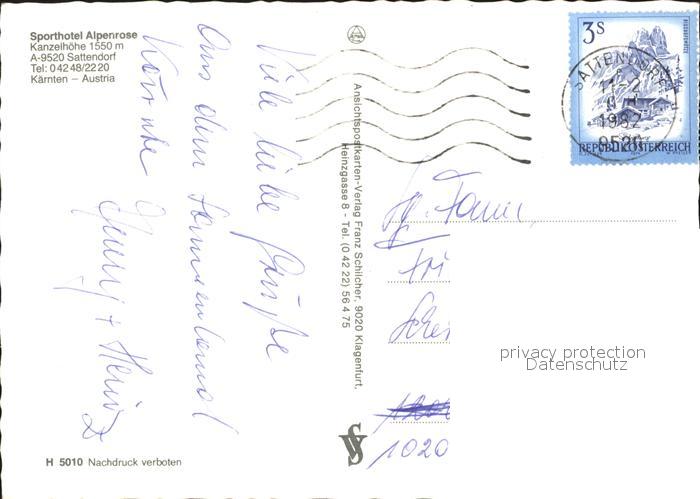 Sporthotel Alpenrose
Kanzelhöhe 1550 m
A-9520 Sattendorf
Tel: 0 42 48/22 20
Kärnten – Austria
Viele liebe Grüße
Aus dem Sonnenland
Kärnten
+ Heinz
H 5010 Nachdruck verboten
Ansichtspostkarten-Verlag Franz Schilcher, 9020 Klagenfurt,
Heinzgasse 8 - Tel. (0 42 22) 56 4 75
3 S
REPUBLIK ÖSTERREICH
SATTENDORF
11.-2.
1982
9520
Fam.
1020
privacy protection
Datenschutz